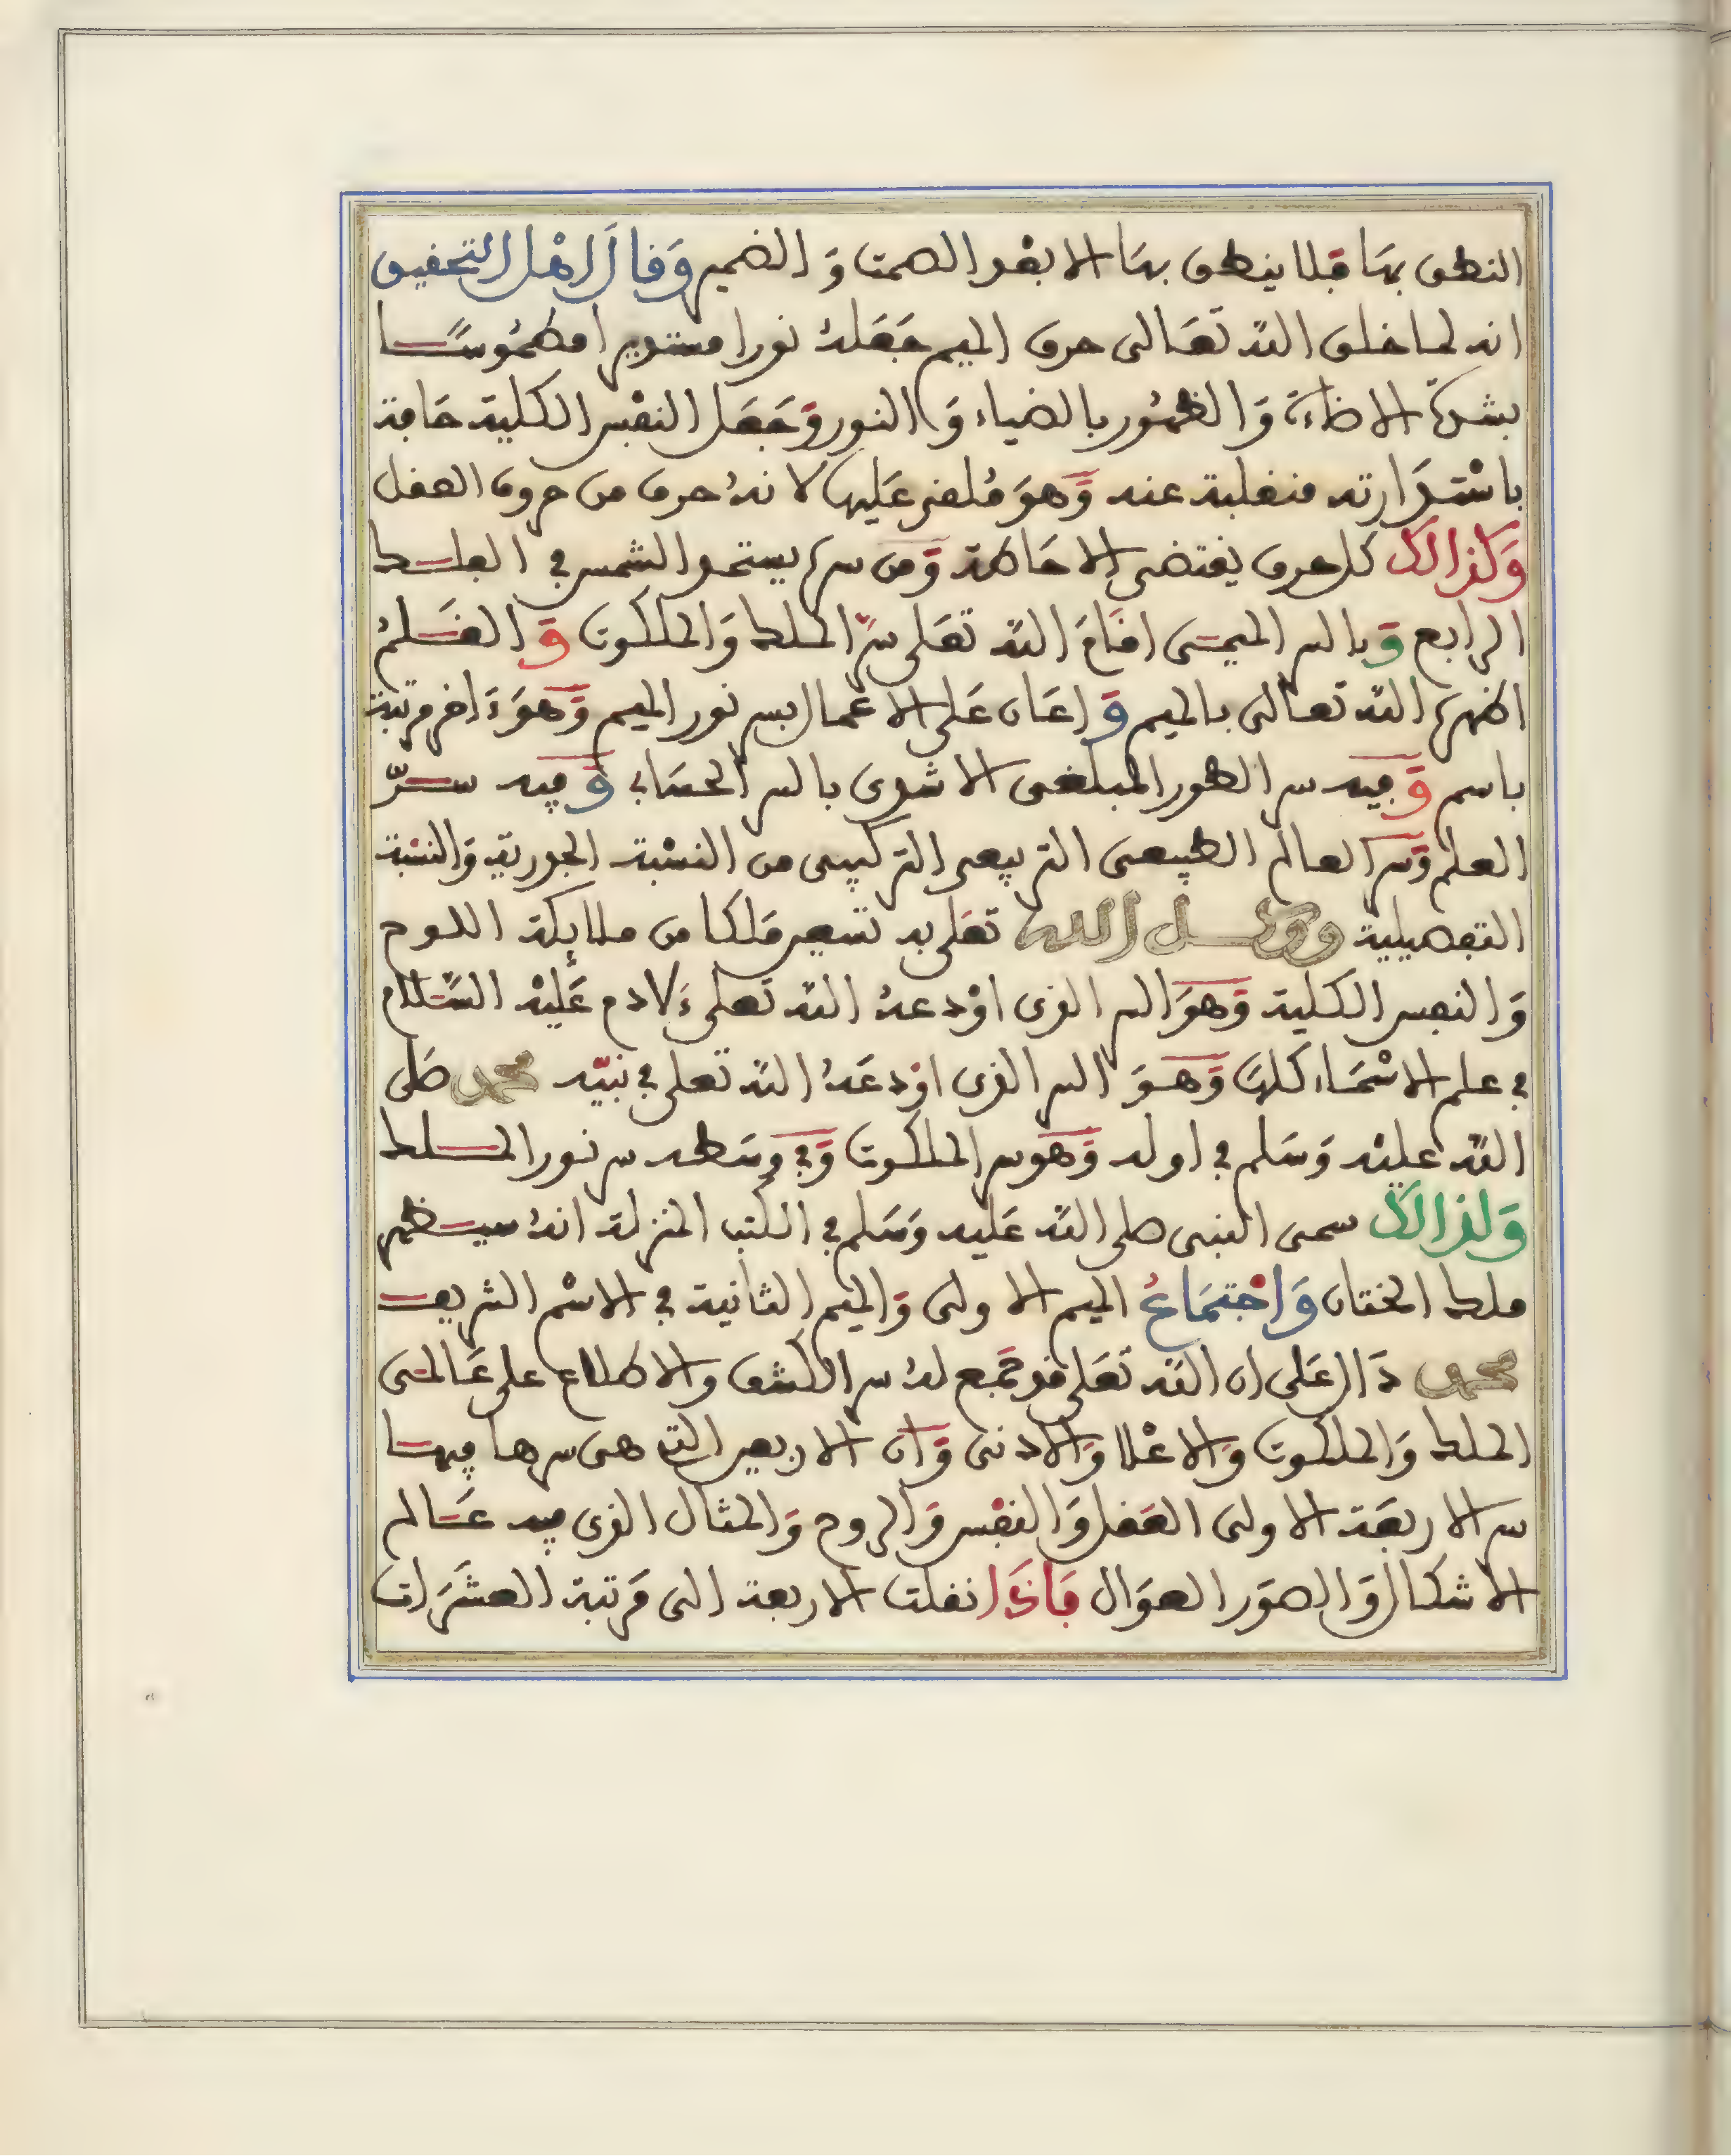 النطق بها فلا ينطق بها الا بعد الصمت وَ الضمير وَقالَ اهْل التحقيق
انه لما خلق اللّه تَعَالى حرف الميم جَعَلهُ نورا مستديرا مطمُوسًا
بشدة الاضاءة وَالظهُور بالضياء وَالنور وَجَعَل النفْس الكلية حَافة
باسْتدَارته منفلبة عنه وَهوَ مُلقى عَليها لانهُ حرف من حروف العقل
وَكذالك كل حرف يقتضى الاحَاطة وَمن سره يستمد الشمس في الفلك
الرابع وَبالسر الميمى اقَامَ اللّه تعَلى سرّ الملك وَالملكوت وَالقَلمُ
اظهره اللّه تعالى بالميم وَاعَان عَلى الاعْمال بسر نور الميم وَهوَ ءَاخر مرتبة
باسم وَفيه سر الطور المبلغى الاشرف بالسر الحسَابي وَفيه سرّ
العلم وَسر العالم الطبيعى التربيعى التركيبى من النسْبة الجورية وَالنسْبة
التفصيلية ووكل الله تعَلى به تسعين مَلكا من ملايكة اللوح
وَالنفس الكلية وَهوَ السر الذى اوْدعهُ اللّه تعلى ءَلادم عَليْه السَّلام
في علم الاسْمَاء كلهَا وَهوَ السر الذى اوْدعَهُ اللّه تعلى في نبيّه محمد صَلى
اللّه عليْه وَسَلم في اوله وَهوَ سر الملكوت وَفي وسَطه سر نور الملك
وَلذالك سمى النبى صلى اللّه عَليه وَسَلم في الكتب المنزلة انهُ سيظهر
ملك الختان وَاجْتمَاعُ الميم الاولى وَالميم الثانية في الاسْم الشريف
محمد دَال عَلى ان اللّه تعَلى قد جَمع لهُ سر الكشف والاطلاع على عَالمى
الملك وَالملكوت وَالاعْلا وَالادنى وَان الاربعين التى هى سرها فيها
سر الاربَعة الاولى العَقل وَالنفْس وَالروح وَالمثال الذى فيه عَالم
الاشكال وَالصوَر العوَال فَاذَا نقلت الاربعة الى مَرتبة العشَرَات